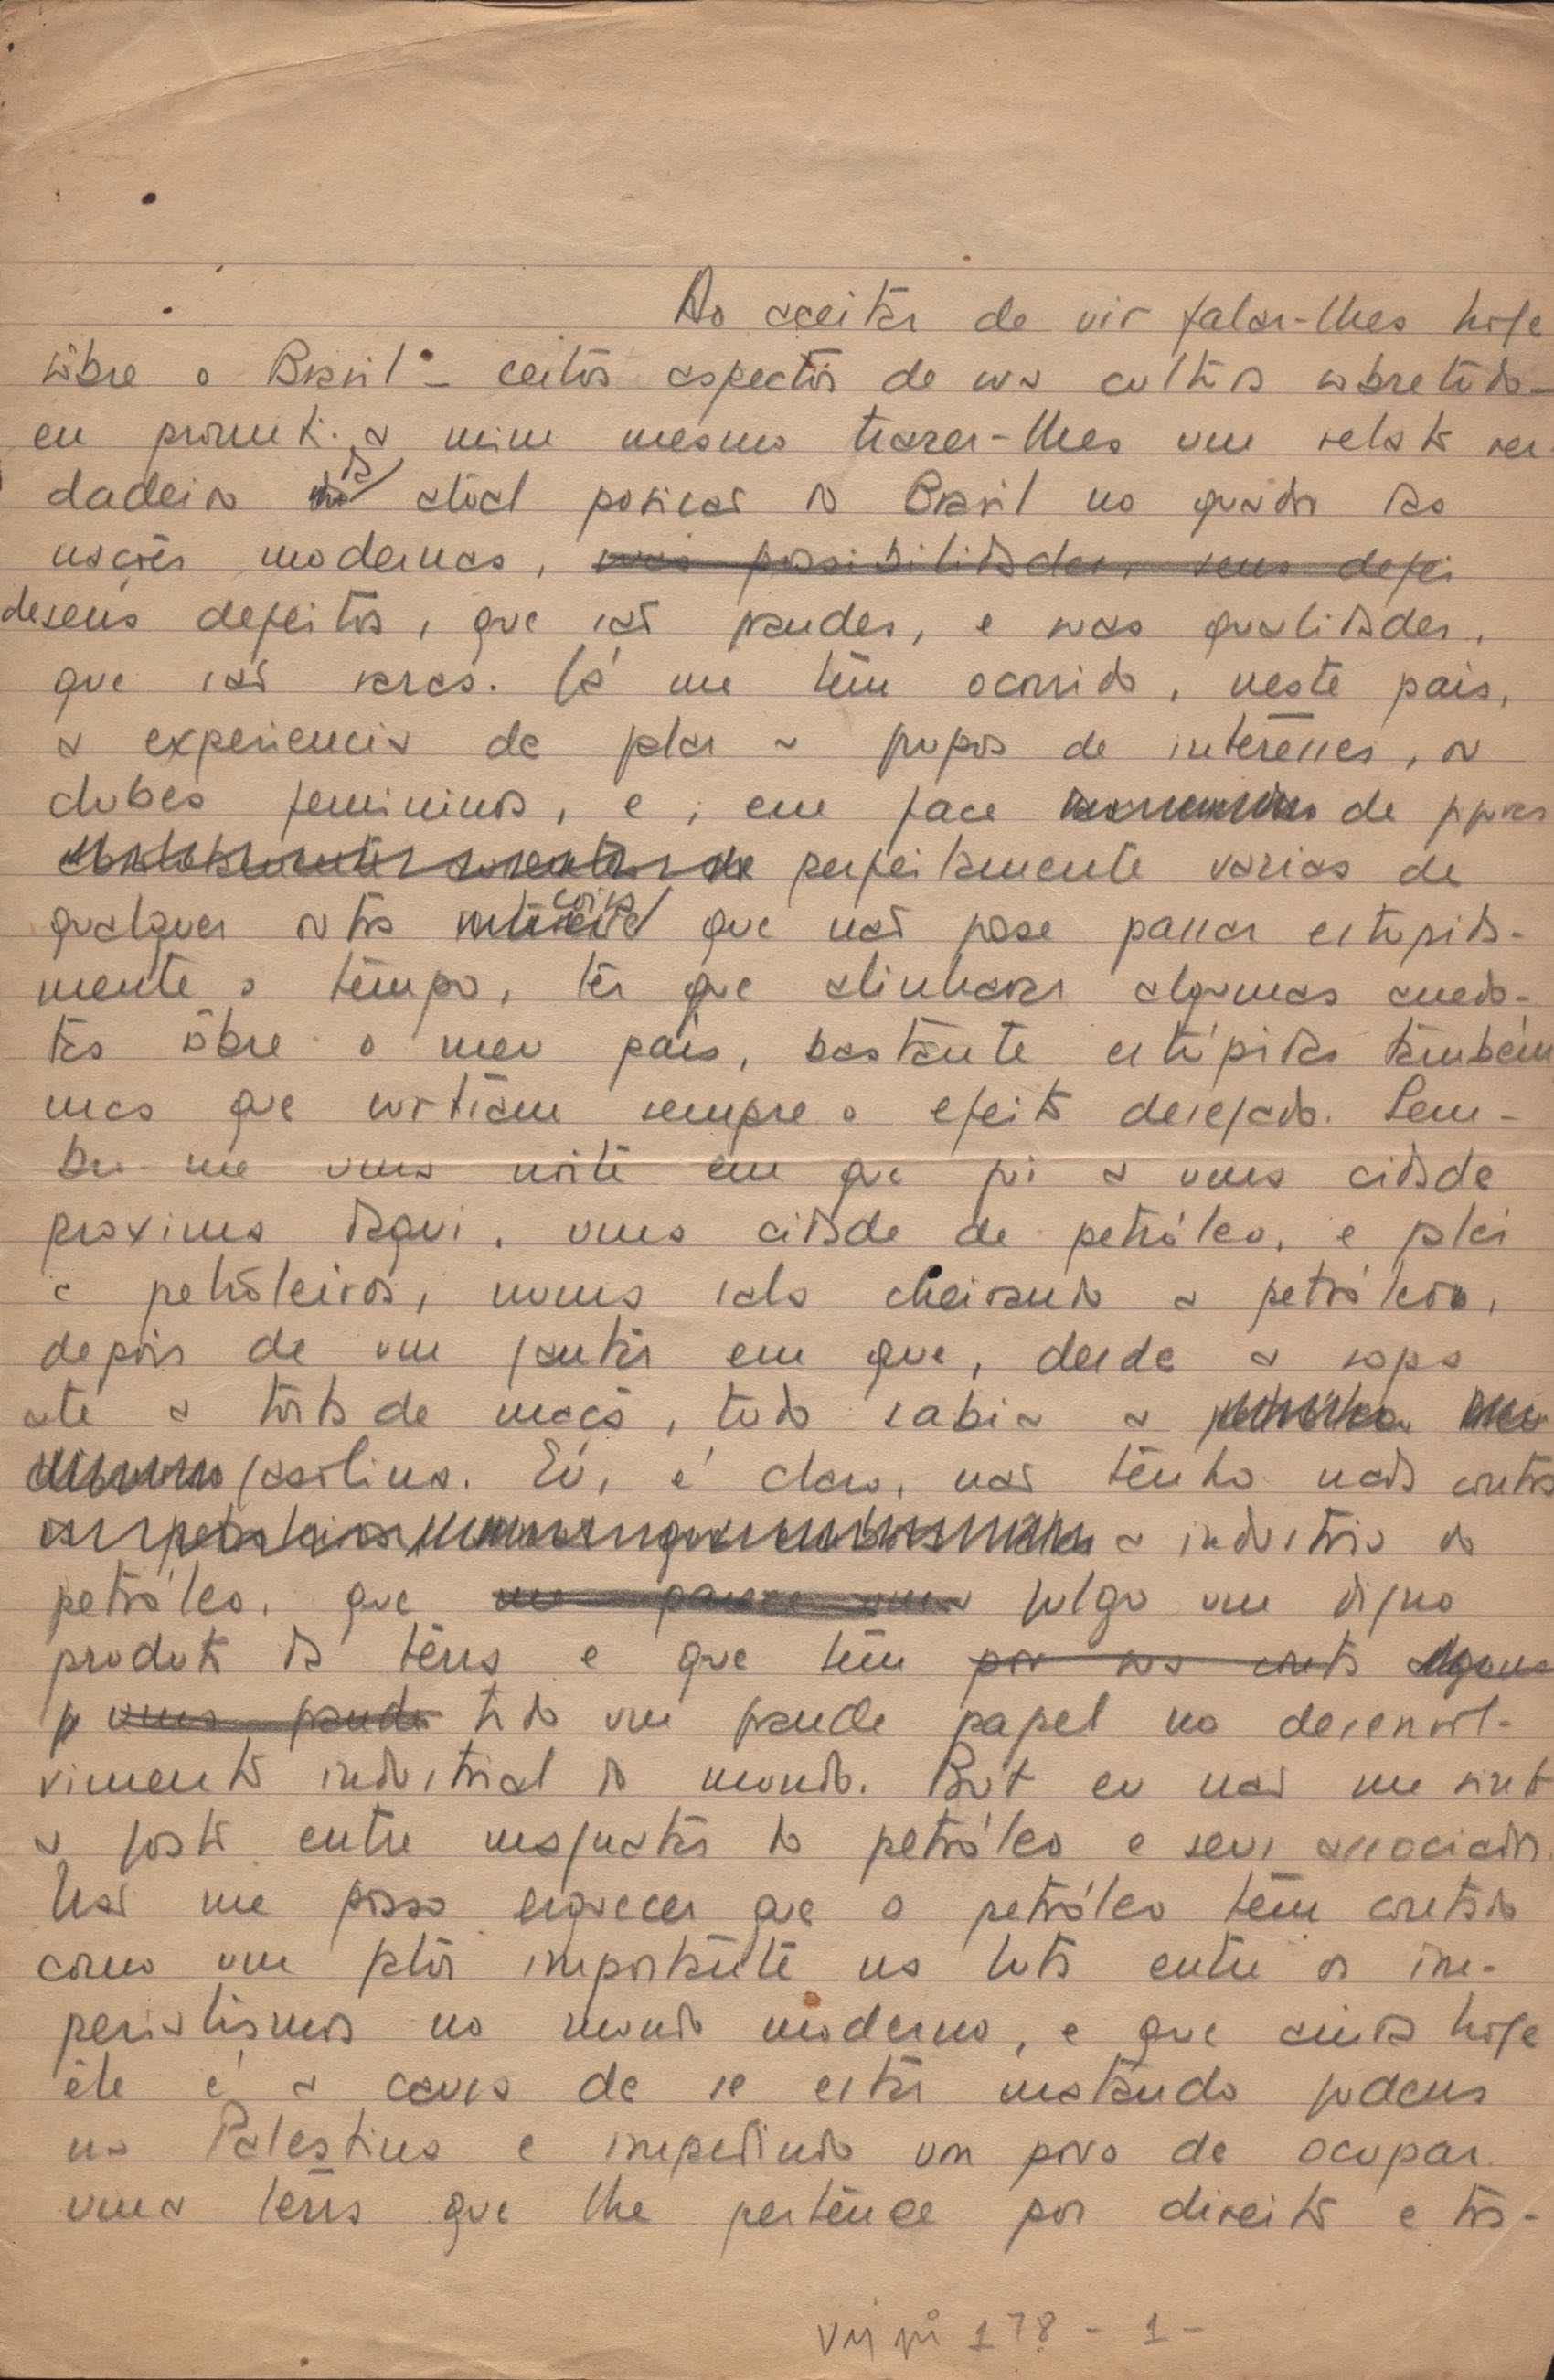 Ao aceitar de vir falar-lhes hoje
sôbre o Brasil - certos aspectos de sua cultura sobretudo -
eu prometi a mim mesmo trazer-lhes um relato ver-
dadeiro da atual posição do Brasil no quadro das
nações modernas, suas possibilidades, seus defei
de seus defeitos, que são grandes, e suas qualidades,
que são raras. Já me têm ocorrido, neste país,
a experiencia de falar a grupos de interêsses, ou
clubes femininos, e, em face de pessoas
perfeitamente varias de
qualquer outra coisa que não fosse passar estupida-
mente o tempo, ter que alinhavar algumas anedo-
tas sôbre o meu país, bastante estúpidas também
mas que surtiam sempre o efeito desejado. Lem-
bra-me uma noite em que fui a uma cidade
proxima daqui, uma cidade de petróleo, e falei
a petroleiros, numa sala cheirando a petróleo,
depois de um jantar em que, desde a sopa
até a torta de maçã, tudo sabia a petróleo
gasolina. Eu, é claro, não tenho nada contra
os petroleiros, a industria do
petróleo, que me parece uma julgo um digno
produto da terra e que tem por sua conta alguns
p uma grande tido um grande papel no desenvol-
vimento industrial do mundo. But eu não me sinto
a gosto entre magnatas do petróleo e seus associados.
Não me posso esquecer que o petróleo tem contado
como um fator importante na luta entre os im-
perialismos no mundo moderno, e que ainda hoje
êle é a causa de se estar matando judeus
na Palestina e impedindo um povo de ocupar
uma terra que lhe pertence por direito e tra-
178 - 1 -